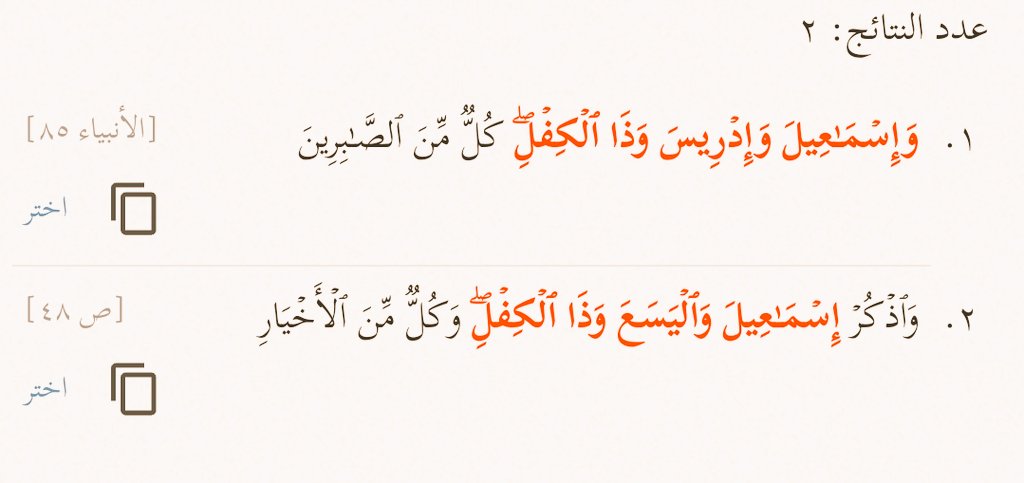 عدد النتائج: ٢
١. وَإِسْمَـٰعِيلَ وَإِدْرِيسَ وَذَا ٱلْكِفْلِۖ كُلٌّۭ مِّنَ ٱلصَّـٰبِرِينَ
[الأنبياء ٨٥]
اختر
٢. وَٱذْكُرْ إِسْمَـٰعِيلَ وَٱلْيَسَعَ وَذَا ٱلْكِفْلِۖ وَكُلٌّۭ مِّنَ ٱلْأَخْيَارِ
[ص ٤٨]
اختر